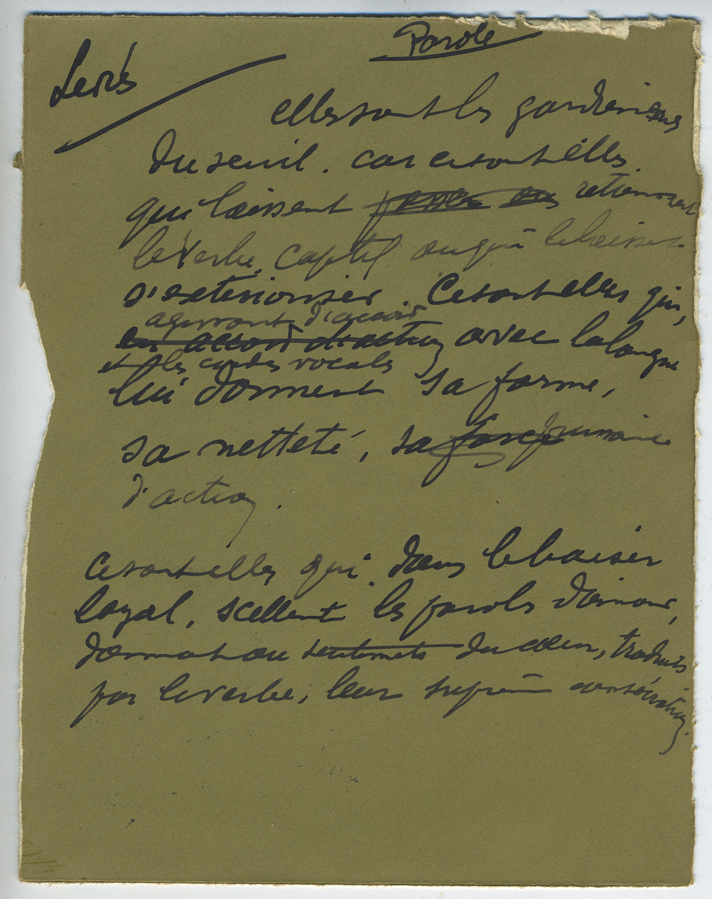 Parole
Levrés
elles sont les gardiennes
du seuil. car ce sont elles
qui laissent passer ou retiennent
le Verbe captif ou qui le laissent
s'extérioriser. Ce sont elles qui,
agissant d'accord
en accord d'action avec la langue
et les cordes vocales
lui donnent sa forme,
sa netteté, sa force
d'action.
ce sont elles qui dans le baiser
loyal, scellent les parols d'amour,
donnant au sentiments du cœur, traduits
par le verbe, leur suprême consécration.